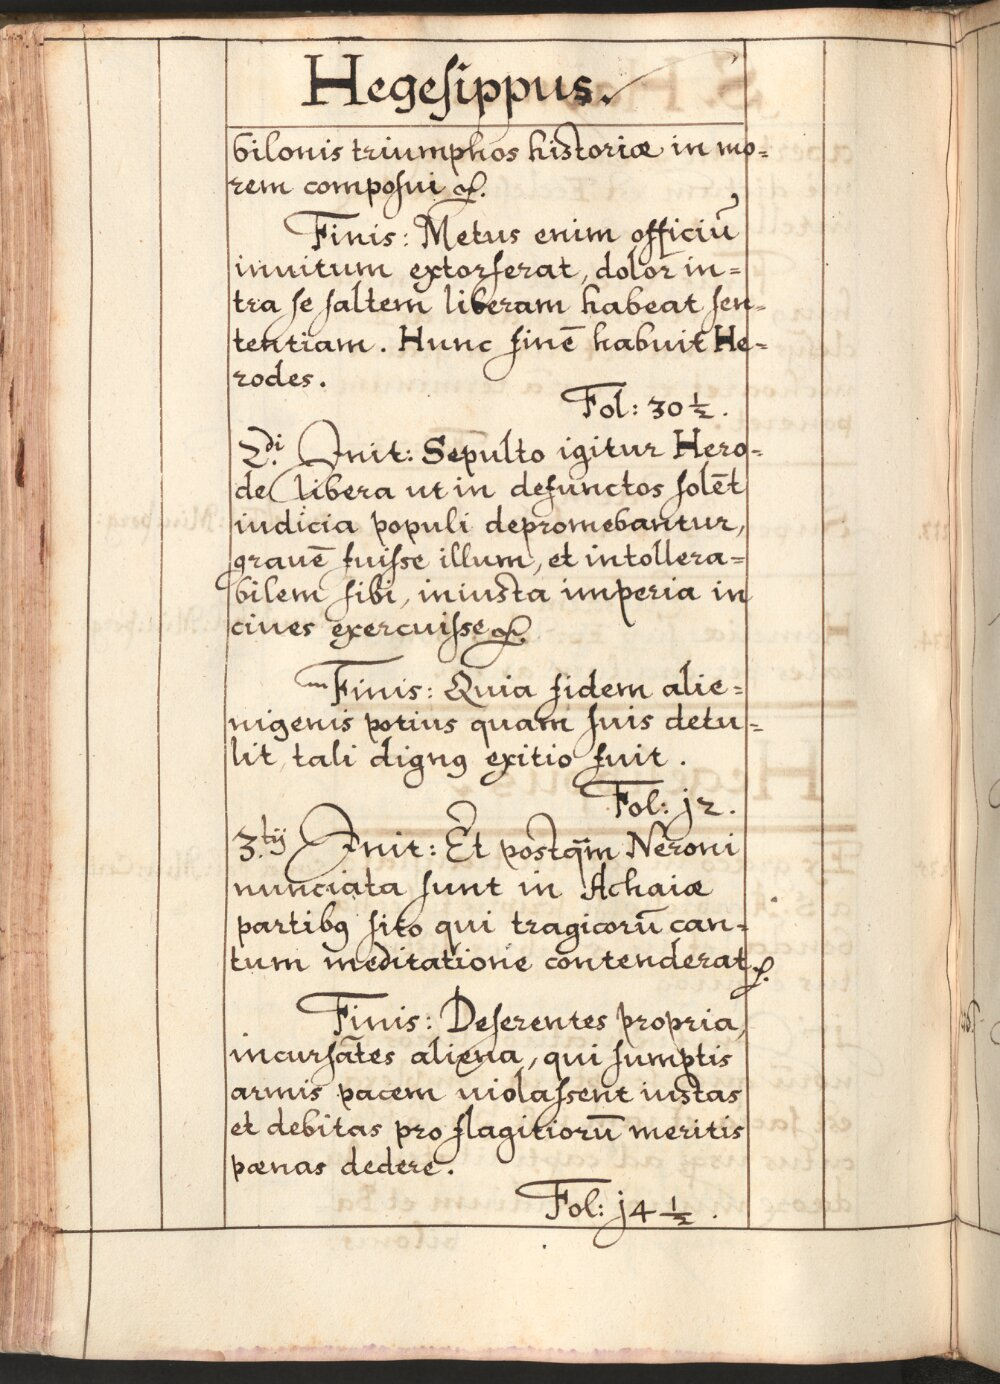 Hegesippus.
bilonis triumphos historiæ in mo=
rem composui &.
Finis: Metus enim officiū
inuitum extorserat, dolor in=
tra se saltem liberam habeat sen=
tentiam. Hunc finē habuit He=
rodes.
Fol: 30 ½.
2.di Init: Sepulto igitur Hero=
de libera ut in defunctos solēt
iudicia populi depromebantur,
grauē fuisse illum, et intollera=
bilem sibi, iniusta imperia in
ciues exercuisse &.
Finis: Quia fidem alie=
nigenis potius quam suis detu=
lit, tali dignꝰ exitio fuit.
Fol: j2.
3.tij Init: Et postq̃m Neroni
nunciata sunt in Achaiæ
partibꝰ sito qui tragicorū can=
tum meditatione contenderat &.
Finis: Deserentes propria,
incursātes aliena, qui sumptis
armis pacem uiolassent iustas
et debitas pro flagitiorū meritis
pænas dedere.
Fol: j4 ½.